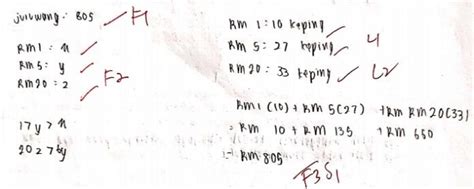 jumwang : 805 F1
Rm 1 : x
Rm 5 : y
Rm 20 : z
F2
17y > x
20 27 by
Rm 1 : 10 keping
Rm 5 : 27 keping
Rm 20 : 33 keping
L2
Rm 1 (10) + Rm 5 (27) + Rm Rm 20 (33)
= Rm 10 + Rm 135 + Rm 660
= Rm 805
F3S1